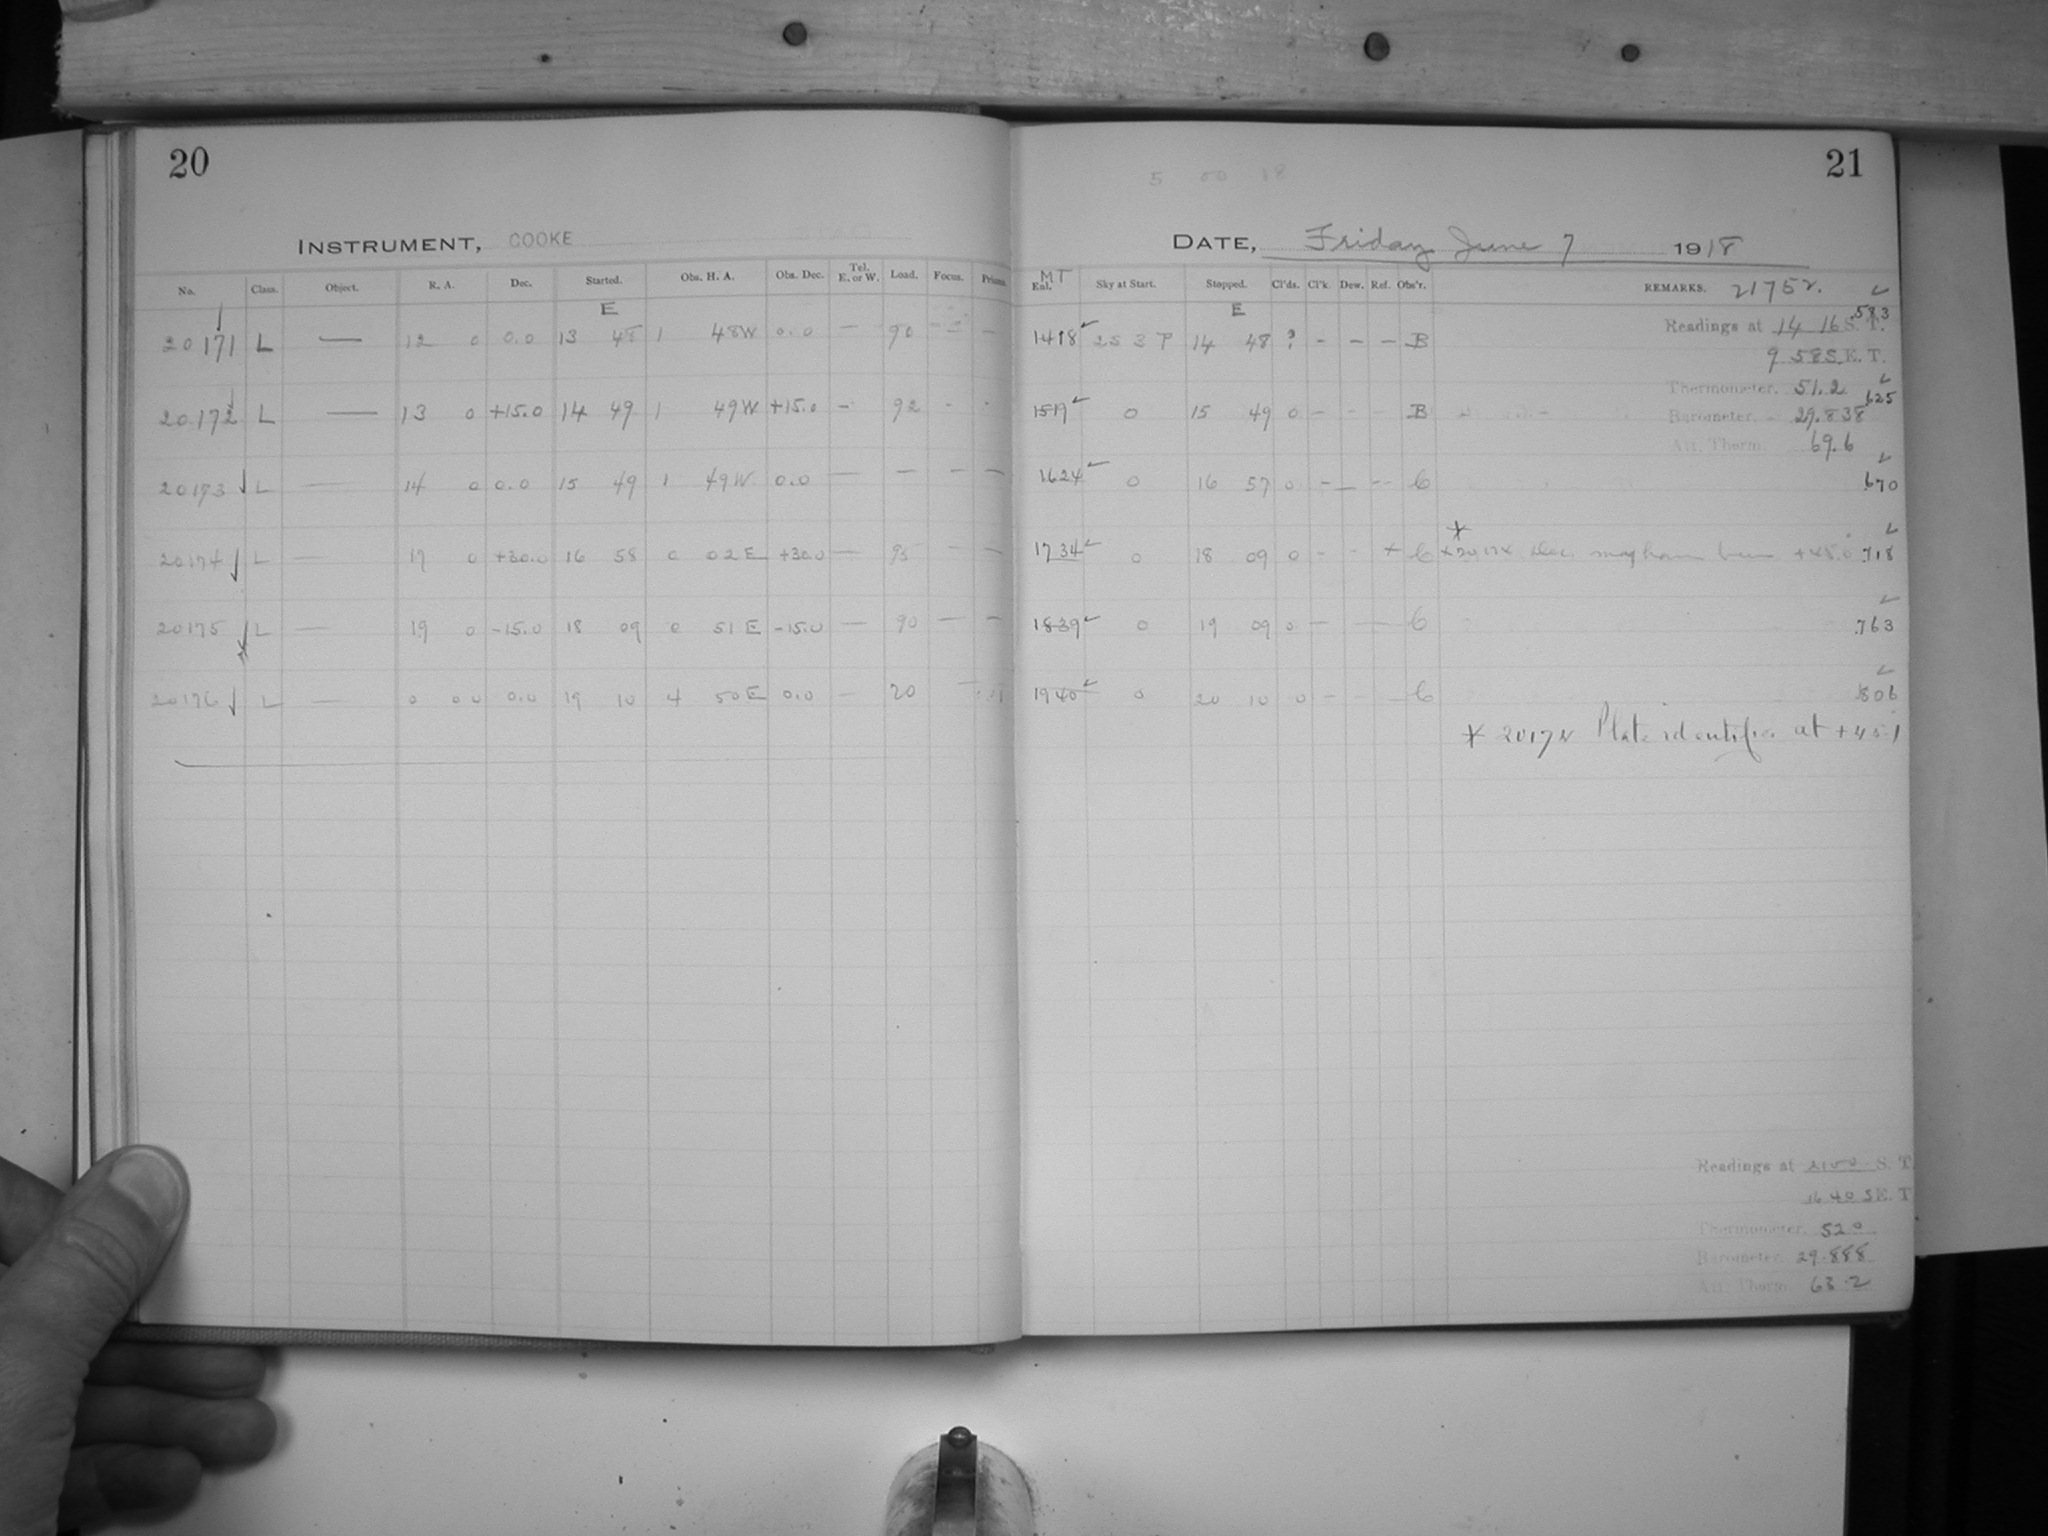 20
21
5 00 18
INSTRUMENT, COOKE
DATE, Friday June 7 1918
No. Class. Object. R. A. Dec. Started. Obs. H. A. Obs. Dec. Tel. E. or W. Load. Focus. Prisms.
MT Eql. Sky at Start. Stopped. Cl'ds. Cl'k. Dew. Ref. Obs'r. REMARKS. 21752.
E
E
20171 L — 12 0 0.0 13 48 1 48W 0.0 — 90 — —
1418 25 3 P 14 48 ? - - - B Readings at 14 16 S. T. .583
9 58 S.E. T.
Thermometer. 51.2
20172 L — 13 0 +15.0 14 49 1 49W +15.0 - 92 - -
1519 0 15 49 0 - - B Barometer. 29.838 625
Att. Therm. 69.6
20173 L — 14 0 0.0 15 49 1 49W 0.0 — — — —
1624 0 16 57 0 - - -- C .670
20174 L — 17 0 +30.0 16 58 0 02E +30.0 — 95
1734 0 18 09 0 - - * C * 20174 Dec. may have been +45.0 .718
20175 L — 19 0 -15.0 18 09 0 51E -15.0 — 90 — —
1839 0 19 09 0 — — C .763
20176 L — 0 00 0.0 19 10 4 50E 0.0 — 20
1940 0 20 10 0 - C .806
* 20174 Plate identifies at +45.1
Readings at 21 00 S. T.
16 40 S.E. T.
Thermometer. 52.0
Barometer. 29.888
Att. Therm. 63.2